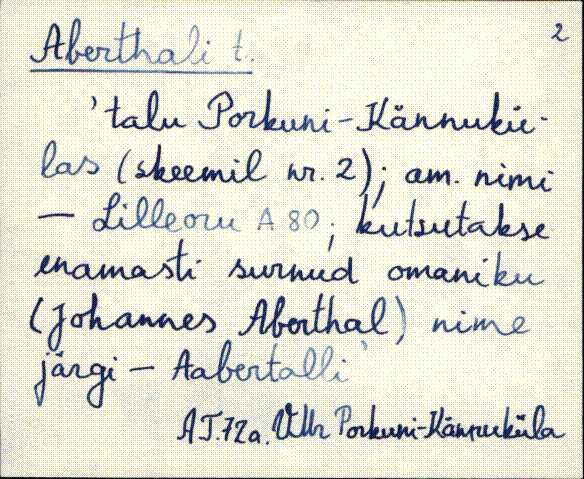 2
Aberthali t.
'talu Porkuni-Kännukü-
las (skeemil nr. 2); am. nimi
— Lilleoru A 80; kutsutakse
enamasti surnud omaniku
(Johannes Aberthal) nime
järgi — Aabertalli'
AJ.72a. VMr Porkuni-Kännuküla